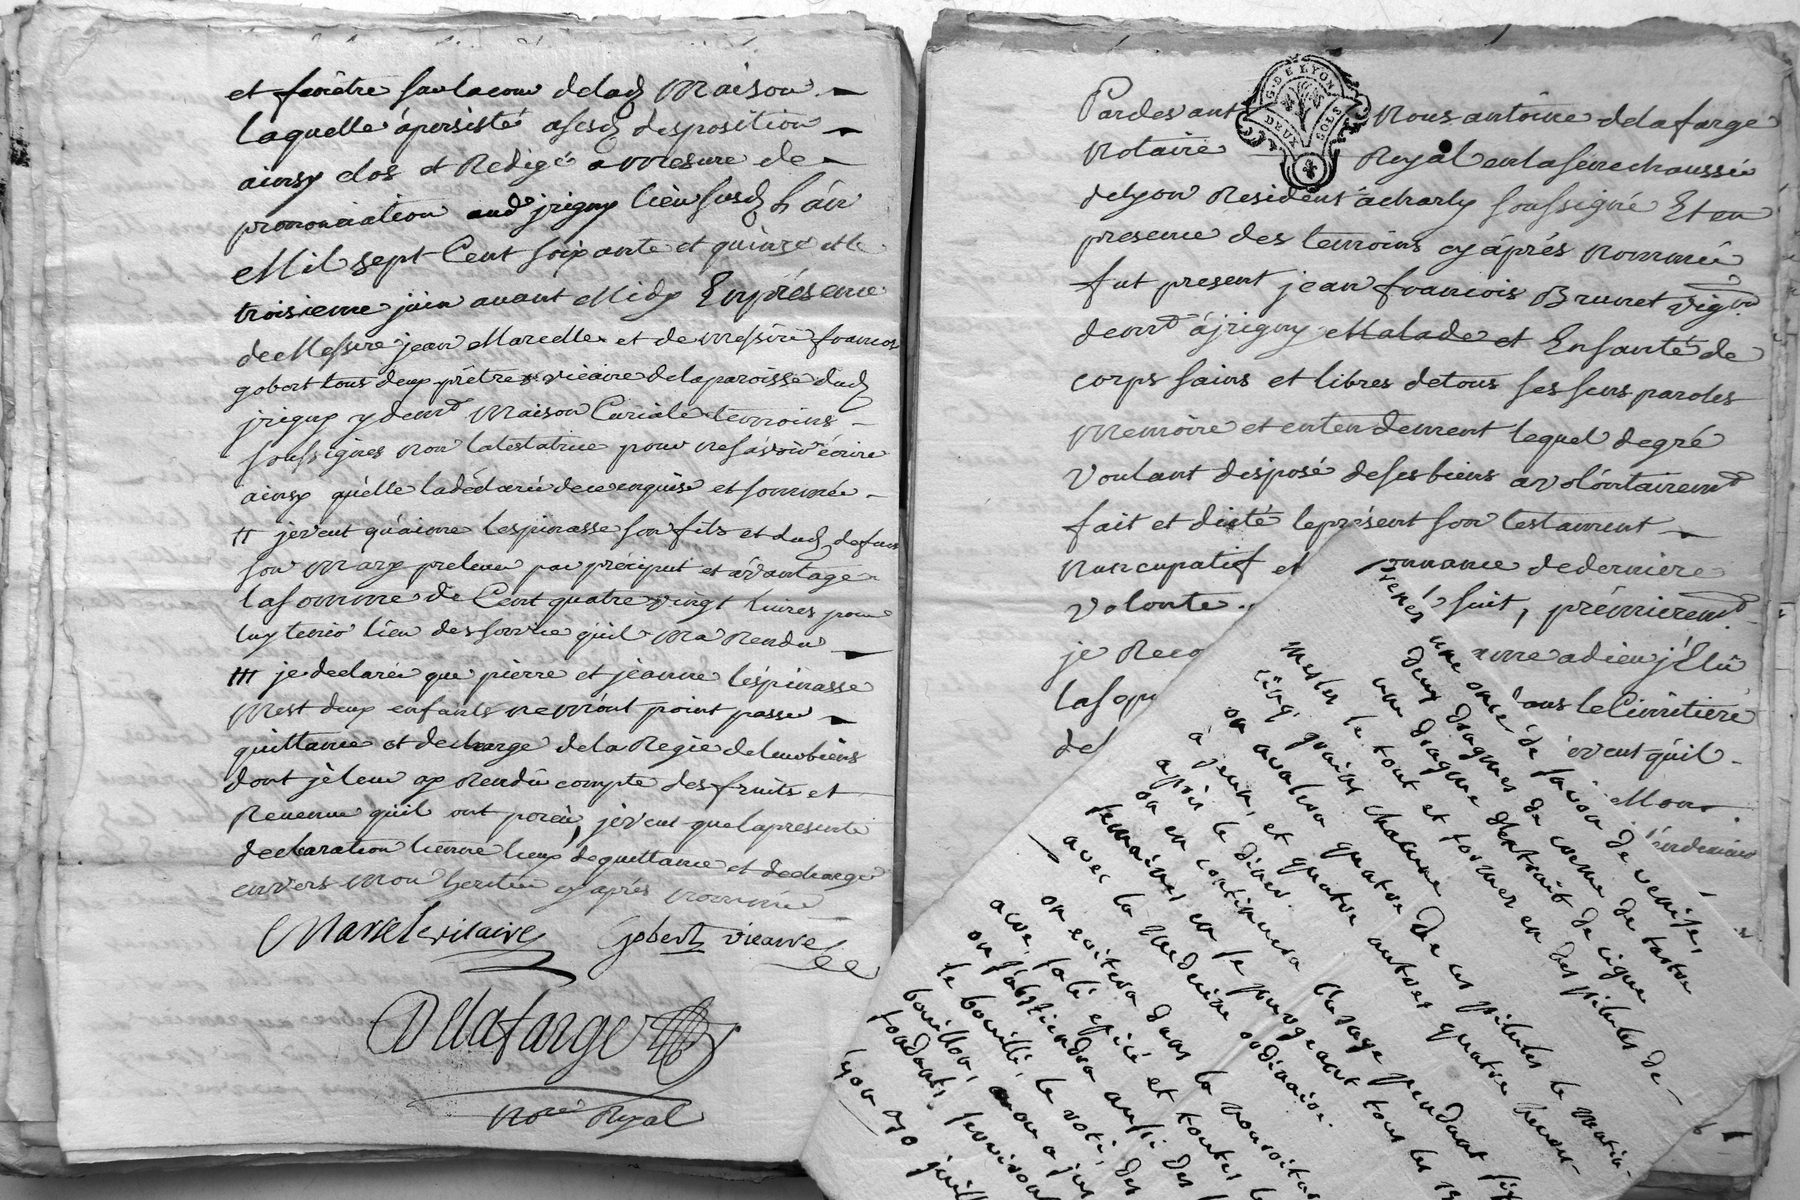 et fenêtre sur la cour delad maison
laquelle à persisté asesd disposition
ainsy clos et Redigé a mesure de
prononciation aud jrigny lieu susd L'án
Mil sept Cent soixante et quinze et le
troisieme juin avant Midy En présence
de Messire jean Marcelle et de messire francois
gobert tous deux prêtres vicaire de la paroisse dud
jrigny y demt Maison Curiale temoins
soussignés non la testatrice pour ne sávoir écrire
ainsy qu'elle la déclarée de ce enquise et sommée
jeveut qu'aime lespinasse son fils et dud defunt
son Mary preleve par préciput et ávantage
la somme de Cent quatre vingt livres pour
luy tenir lieu des service qu'il Ma Rendu
je declarée que pierre et jeanne léspinasse
Mest deux enfants ne m'ont point passé
quittance et decharge de la Regie de leur biens
dont je leur ay Rendu compte des fruits et
Revenue qu'il ont porču, je veut que la presente
declaration tienne lieux de quittance et decharge
envers mon heritier cy aprés nommée
Marcelle vicaire Gobert vicaire
Delafarge
Nore Royal
Pardevant Nous antoine delafarge
G. DE LYON
DEUX SOLS
Notaire Royal en la senechaussée
de Lyon Resident à charly soussigné Et en
presence des temoins cy áprés nommée
fut present jean francois Brunet vign
demt à jrigny Malade et Ensanté de
corps sains et libres de tous ses sens paroles
Memoire et entendement lequel degré
Voulant disposé de ses biens a volontairemt
fait et dicté le présent son testament
Nuncupatif et onnance de derniere
Volonte. suit, prémieremt
je Reco ame a dieu j'Elû
la sepu dans le Cimitiere
de veut qu'il
Mon
prenés une once de savon de venise,
deux dragmes de creme de tartre
une dragme d'extrait de cigue
mesler le tout et former en des pilules de
cinq grains chacune
on avalera quatre de ces pilules le matin
à jeun, et quatre autres quatre heures
après le diner.
on en continuera l'usage pendant
terminer en se purgeant tous les 15
avec la medecine ordinaire.
on evitera dans la nourriture
acre, salé, epicé et toutes
on s'abstiendra aussi des
le bouilli, le roti, des
bouillon,
fondants,
lyon 20 juill